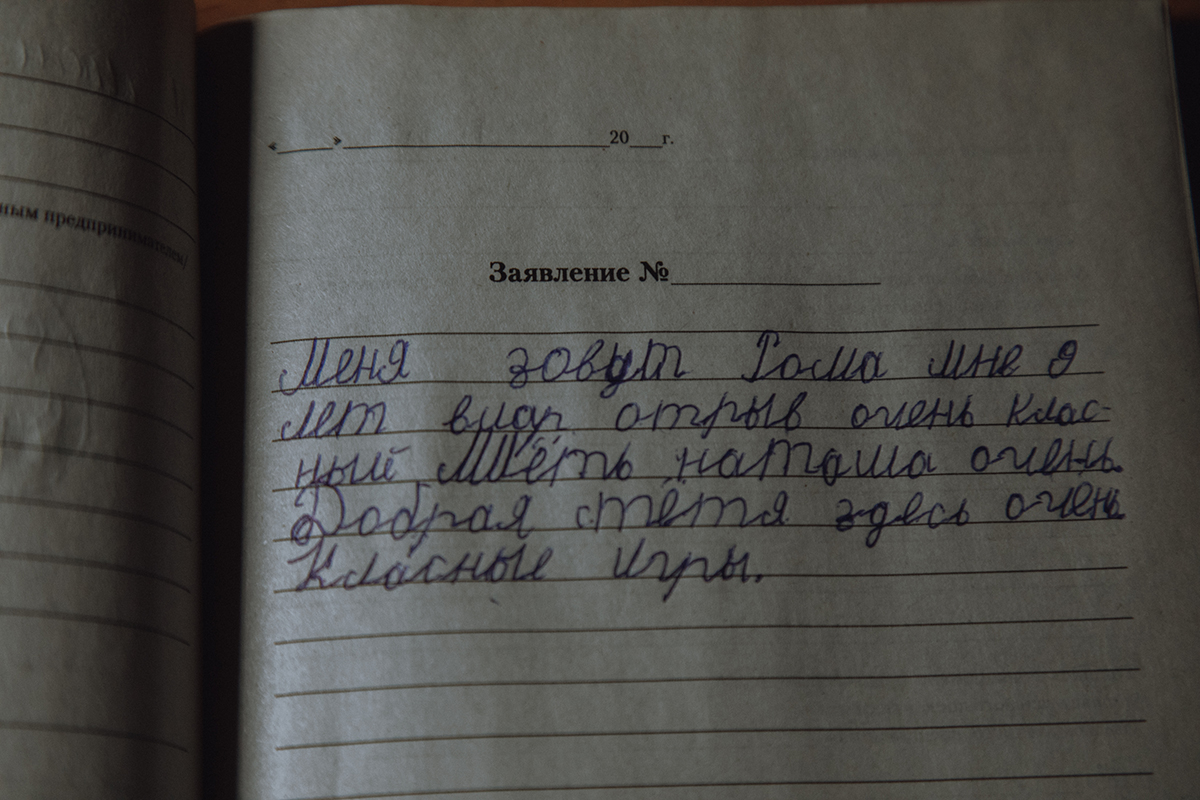 ным предпринимателем)
«____»____________20__г.
Заявление №____________
Меня зовут Рома мне 9
лет отрыв очень клас-
ный наташа очень
Добрая стётя здесь очень
Класные игры.